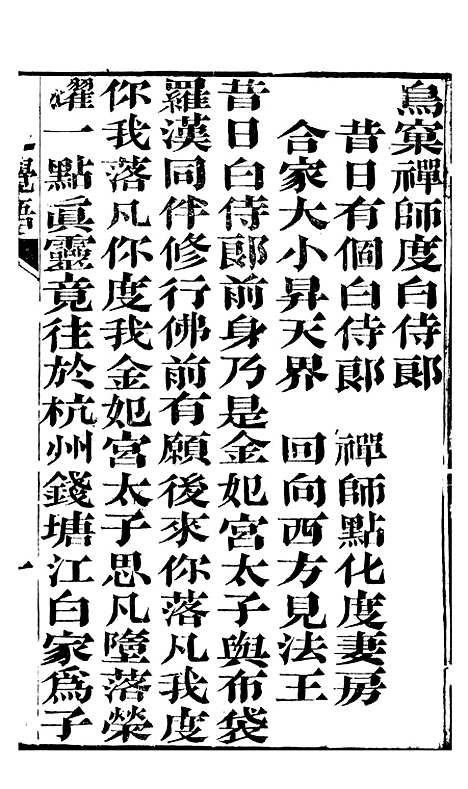 鳥窠禪師度白侍郞
昔日有個白侍郞　禪師點化度妻房
合家大小昇天界　回向西方見法王
昔日白侍郞前身乃是金妃宮太子與布袋
羅漢同伴修行佛前有願後來你落凡我度
你我落凡你度我金妃宮太子思凡墮落榮
耀一點眞靈竟往於杭州錢塘江白家爲子
覺語
一